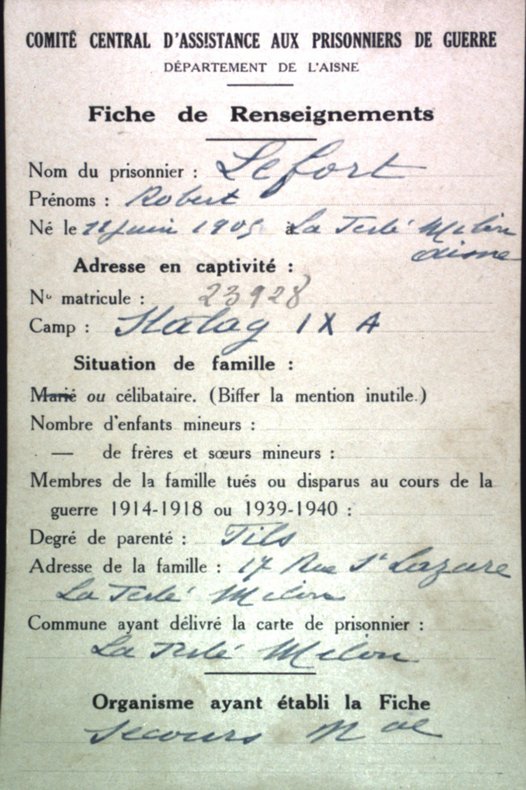 COMITÉ CENTRAL D'ASSISTANCE AUX PRISONNIERS DE GUERRE
DÉPARTEMENT DE L'AISNE
Fiche de Renseignements
Nom du prisonnier : Lefort
Prénoms : Robert
Né le 11 juin 1905 à La Ferté Milon
Aisne
Adresse en captivité :
No matricule : 23928
Camp : Stalag IX A
Situation de famille :
Marié ou célibataire. (Biffer la mention inutile.)
Nombre d'enfants mineurs :
— de frères et sœurs mineurs :
Membres de la famille tués ou disparus au cours de la
guerre 1914-1918 ou 1939-1940 :
Degré de parenté : Fils
Adresse de la famille : 17 Rue St Lazare
La Ferté Milon
Commune ayant délivré la carte de prisonnier :
La Ferté Milon
Organisme ayant établi la Fiche
Secours Nal